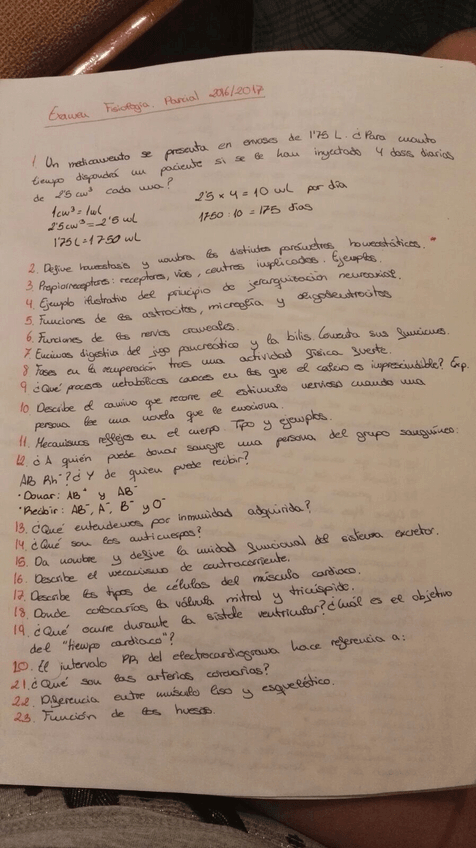 Examen Fisiología. Parcial 2016/2017
1. Un medicamento se presenta en envases de 1'75 L. ¿Para cuanto
tiempo dispondrá un paciente si se le han inyectado 4 dosis diarias
de 2'5 cm³ cada una?
1cm³ = 1mL
2'5 x 4 = 10 mL por dia
2'5cm³ = 2'5 mL
1750 : 10 = 175 dias
1'75L = 1750 mL
2. Define homeostasis y nombra los distintos parámetros homeostáticos. *
3. Propiorreceptores: receptores, vías, centros implicados. Ejemplos.
4. Ejemplo ilustrativo del principio de jerarquización neuroaxial.
5. Funciones de los astrocitos, microglía y oligodentrocitos
6. Funciones de los nervios craneales.
7 Enzimas digestiva del jugo pancreático y la bilis Comenta sus funciones.
8 Fases en la recuperación tras una actividad física fuerte.
9 ¿Qué procesos metabólicos conoces en los que el calcio es imprescindible? Exp.
10 Describe el camino que recorre el estímulo nervioso cuando una
persona lee una novela que le emociona.
11. Mecanismos reflejos en el cuerpo. Tipo y ejemplos.
12 ¿A quién puede donar sangre una persona del grupo sanguíneo:
AB Rh⁻? ¿Y de quien puede recibir?
· Donar: AB⁺ y AB⁻
· Recibir: AB⁻, A⁻, B⁻ y O⁻
13. ¿Qué entendemos por inmunidad adquirida?
14. ¿Qué son los anticuerpos?
15. Da nombre y define la unidad funcional del sistema excretor.
16. Describe el mecanismo de contracorriente.
17. Describe los tipos de células del músculo cardiaco.
18 Donde colocarías la válvula mitral y tricúspide.
19. ¿Qué ocurre durante la sístole ventricular? ¿Cuál es el objetivo
del "tiempo cardiaco"?
20. El intervalo PR del electrocardiograma hace referencia a:
21. ¿Qué son las arterias coronarias?
22. Diferencia entre músculo liso y esquelético.
23. Función de los huesos.